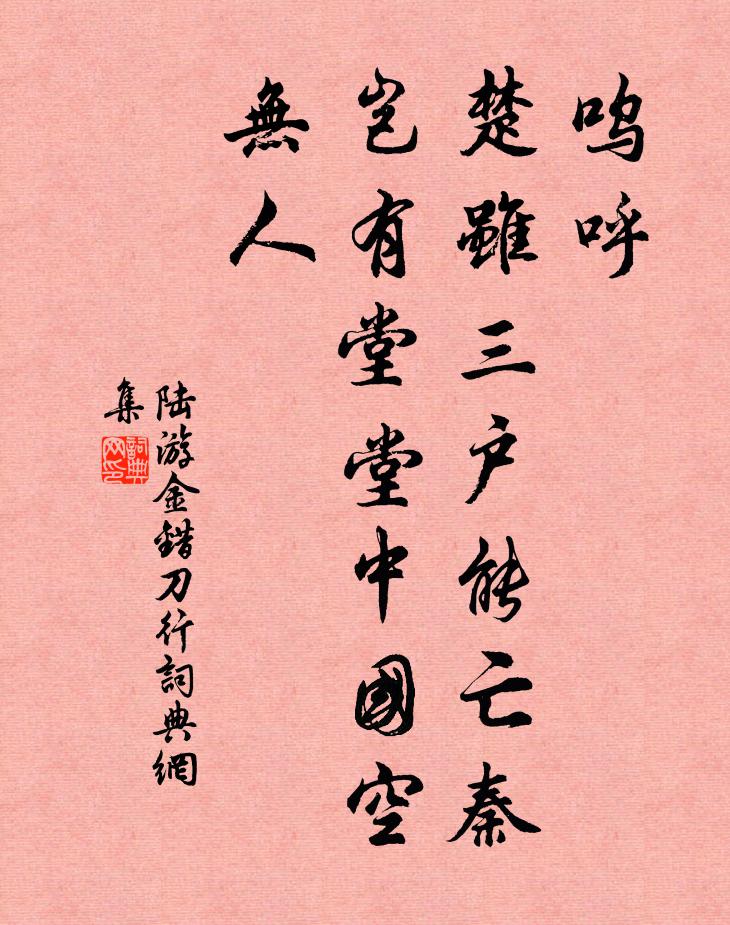 嗚呼
楚雖三户能亡秦
豈有堂堂中國空
無人
陆游金錯刀行詞典網
集
詞典
网印